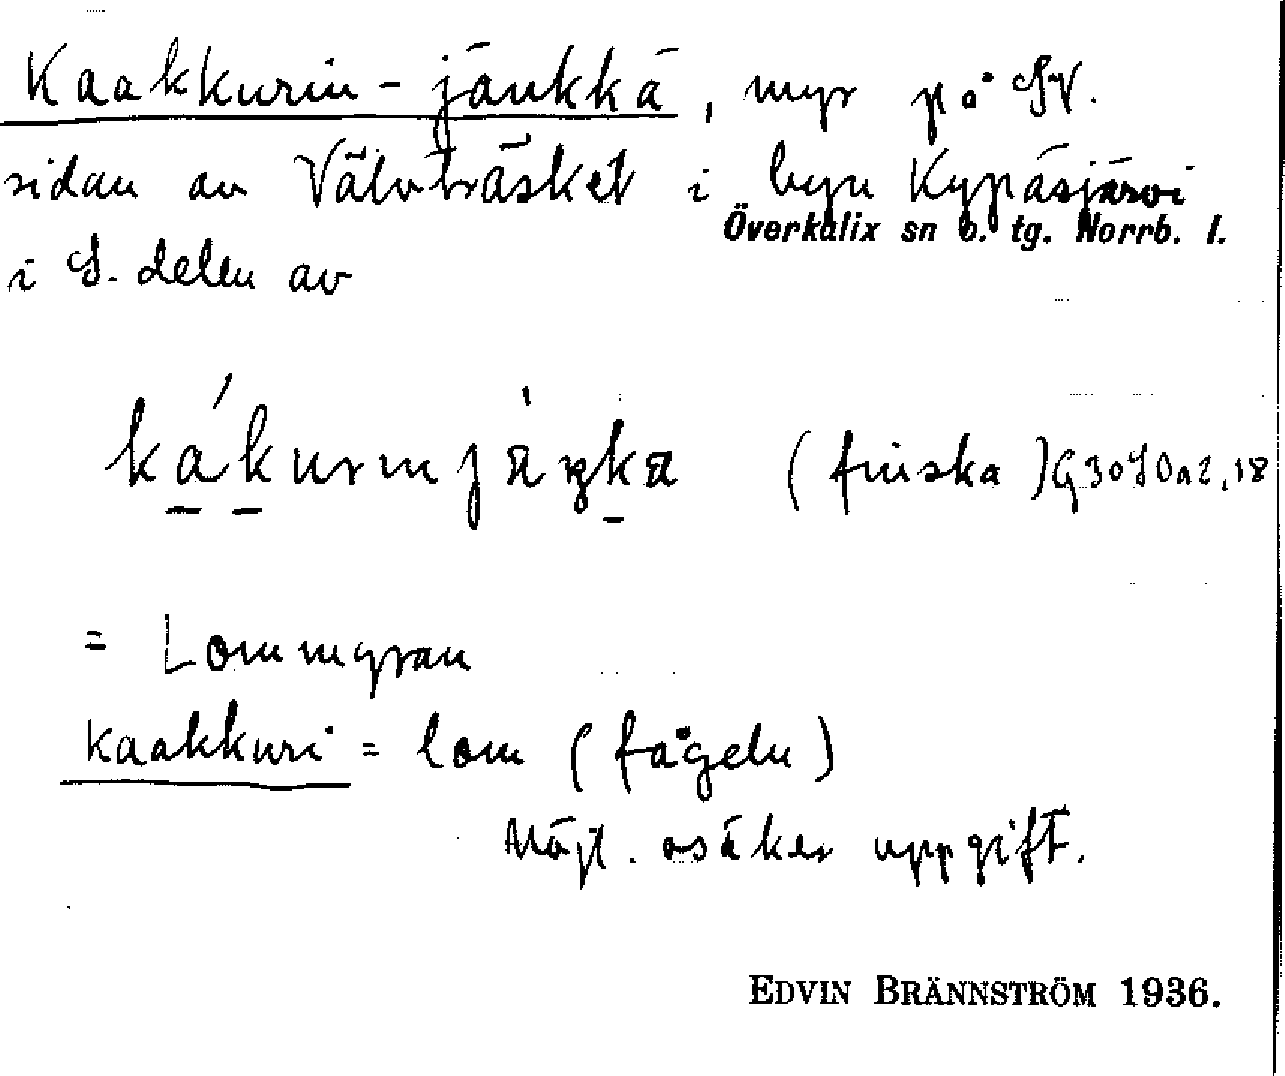 Kaakkurin-jänkkä, myr på SV.
sidan av Välvträsket i byn Kypäsjärvi
Överkalix sn o. tg. Norrb. l.
i S. delen av
(finska)
= Lommyran
kaakkuri = lom (fågeln)
Möjl. osäker uppgift.
EDVIN BRÄNNSTRÖM 1936.